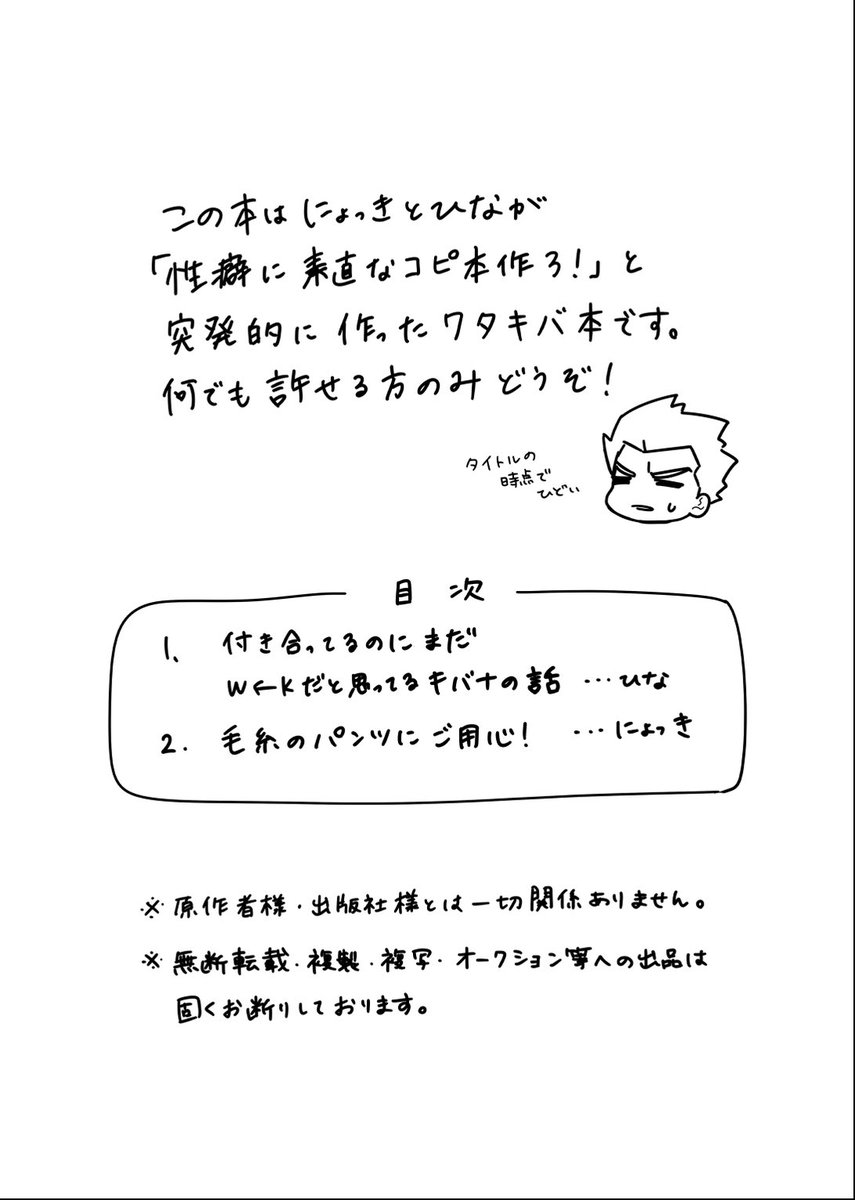 この本はにょっきとひなが
「性癖に素直なコピ本作ろ!」と
突発的に作ったワタキバ本です。
何でも許せる方のみどうぞ!
タイトルの
時点で
ひどい
目次
1. 付き合ってるのにまだ
W←Kだと思ってるキバナの話 …ひな
2. 毛糸のパンツにご用心! …にょっき
※原作者様・出版社様とは一切関係ありません。
※無断転載・複製・複写・オークション等への出品は
固くお断りしております。